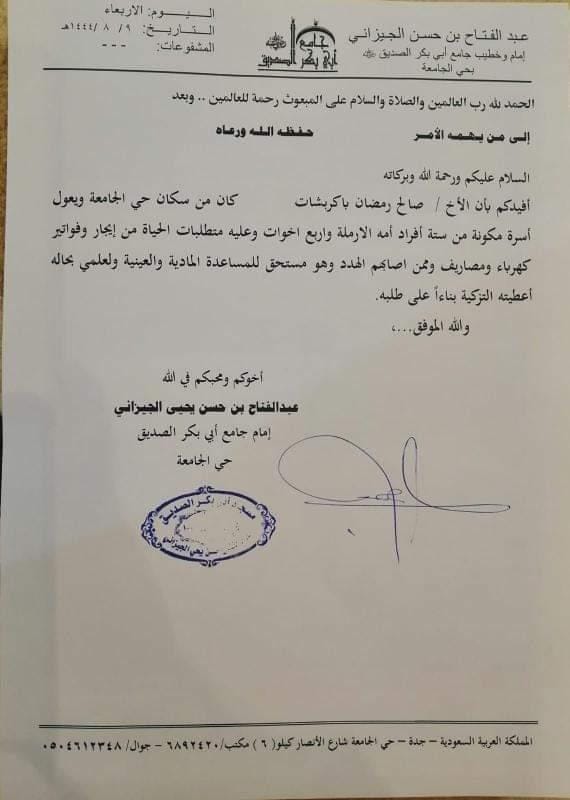 عبد الفتاح بن حسن الجيزاني
إمام وخطيب جامع أبي بكر الصديق
بحي الجامعة
جامع
أبي بكر الصديق
اليـــوم: الاربعاء
التاريخ: ٩/ ٨ /١٤٤٤هـ
المشفوعات: - - -
الحمد لله رب العالمين والصلاة والسلام على المبعوث رحمة للعالمين .. وبعد
إلى من يهمه الأمر حفظه الله ورعاه
السلام عليكم ورحمة الله وبركاته
أفيدكم بأن الأخ / صالح رمضان باكربشات كان من سكان حي الجامعة ويعول
أسرة مكونة من ستة أفراد أمه الارملة واربع اخوات وعليه متطلبات الحياة من إيجار وفواتير
كهرباء ومصاريف وممن اصابهم الهدد وهو مستحق للمساعدة المادية والعينية ولعلمي بحاله
أعطيته التزكية بناءاً على طلبه.
والله الموفق...،
أخوكم ومحبكم في الله
عبدالفتاح بن حسن يحيى الجيزاني
إمام جامع أبي بكر الصديق
حي الجامعة
مسجد أبي بكر الصديق
بن يحي الجيزاني
المملكة العربية السعودية – جدة – حي الجامعة شارع الأنصار كيلو( ٦ ) مكتب/ ٦٨٩٢٤٢٠ – جوال/ ٠٥٠٤٦١٢٣٤٨